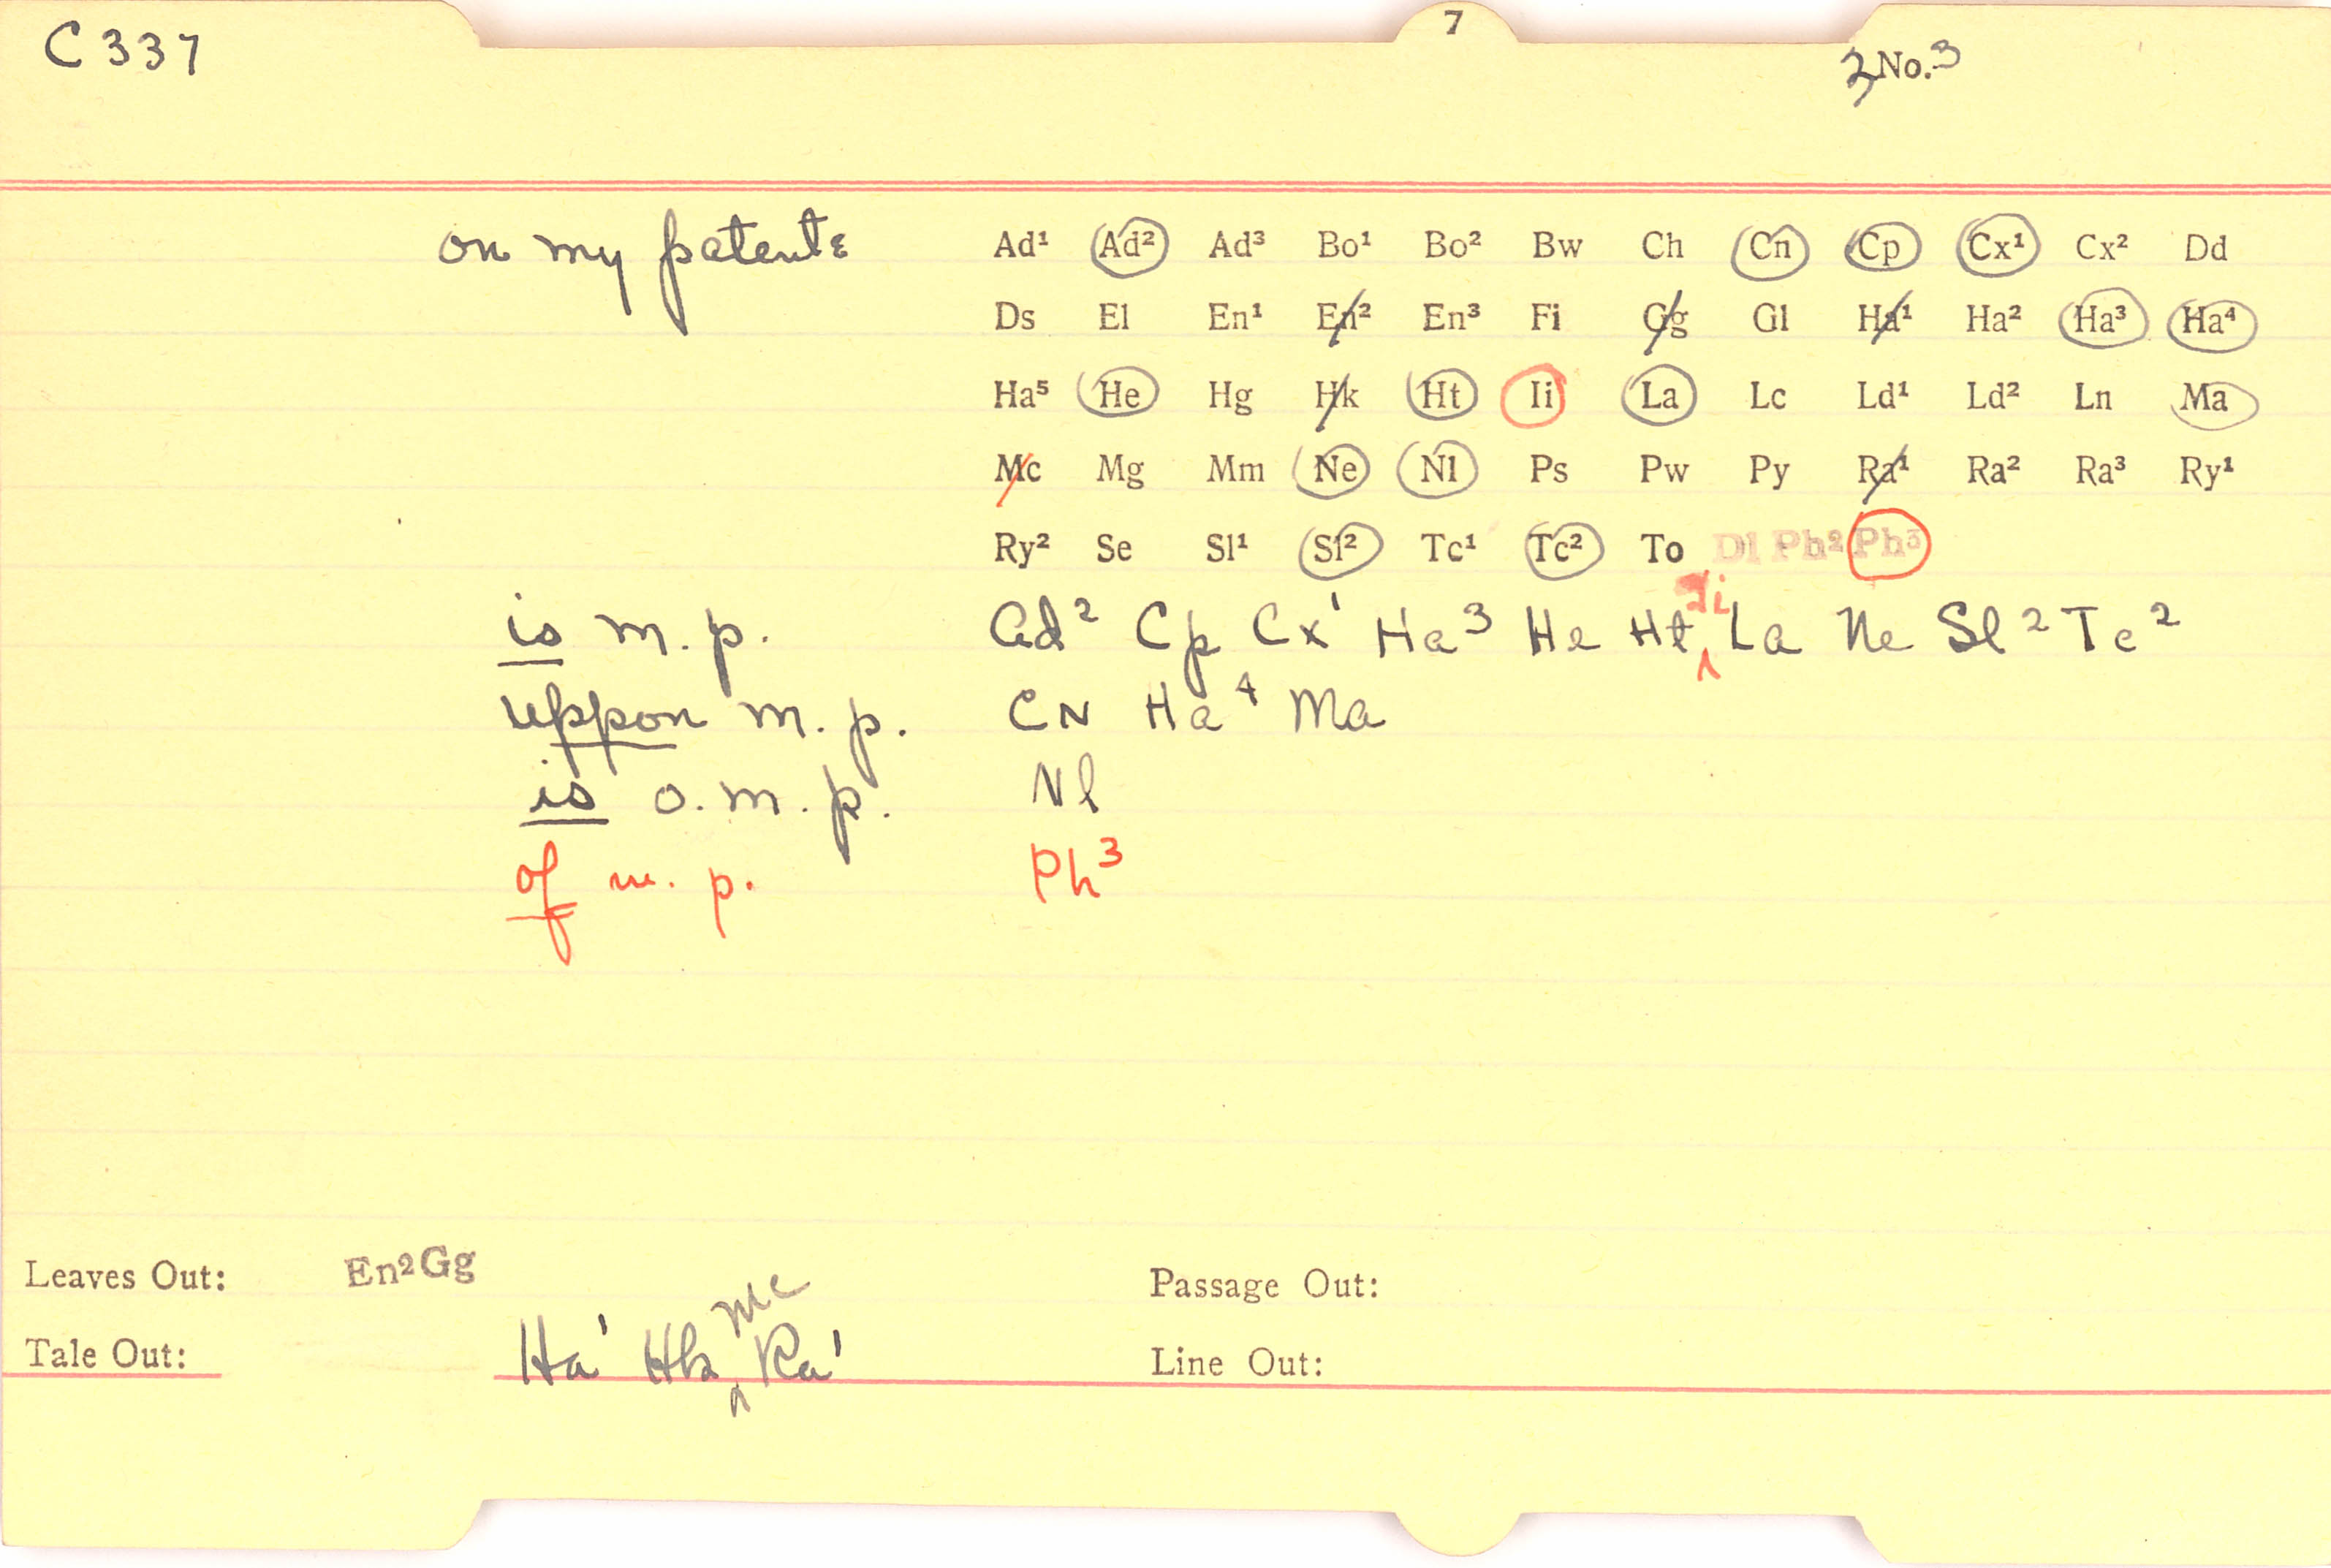 C 337
7
3 No. 3
on my patente Ad¹ Ad² Ad³ Bo¹ Bo² Bw Ch Cn Cp Cx¹ Cx² Dd
Ds El En¹ En² En³ Fi Gg Gl Ha¹ Ha² Ha³ Ha⁴
Ha⁵ He Hg Hk Ht Ii La Lc Ld¹ Ld² Ln Ma
Mc Mg Mm Ne Nl Ps Pw Py Ra¹ Ra² Ra³ Ry¹
Ry² Se Sl¹ Sl² Tc¹ Tc² To Dl Ph² Ph³
is m. p. Ad² Cp Cx¹ Ha³ He Ht Ii La Ne Sl² Tc²
uppon m. p. Cn Ha⁴ Ma
is o. m. p. Nl
of m. p. Ph³
Leaves Out: En²Gg Passage Out:
Tale Out: Ha¹ Hk Mc Ra¹ Line Out: